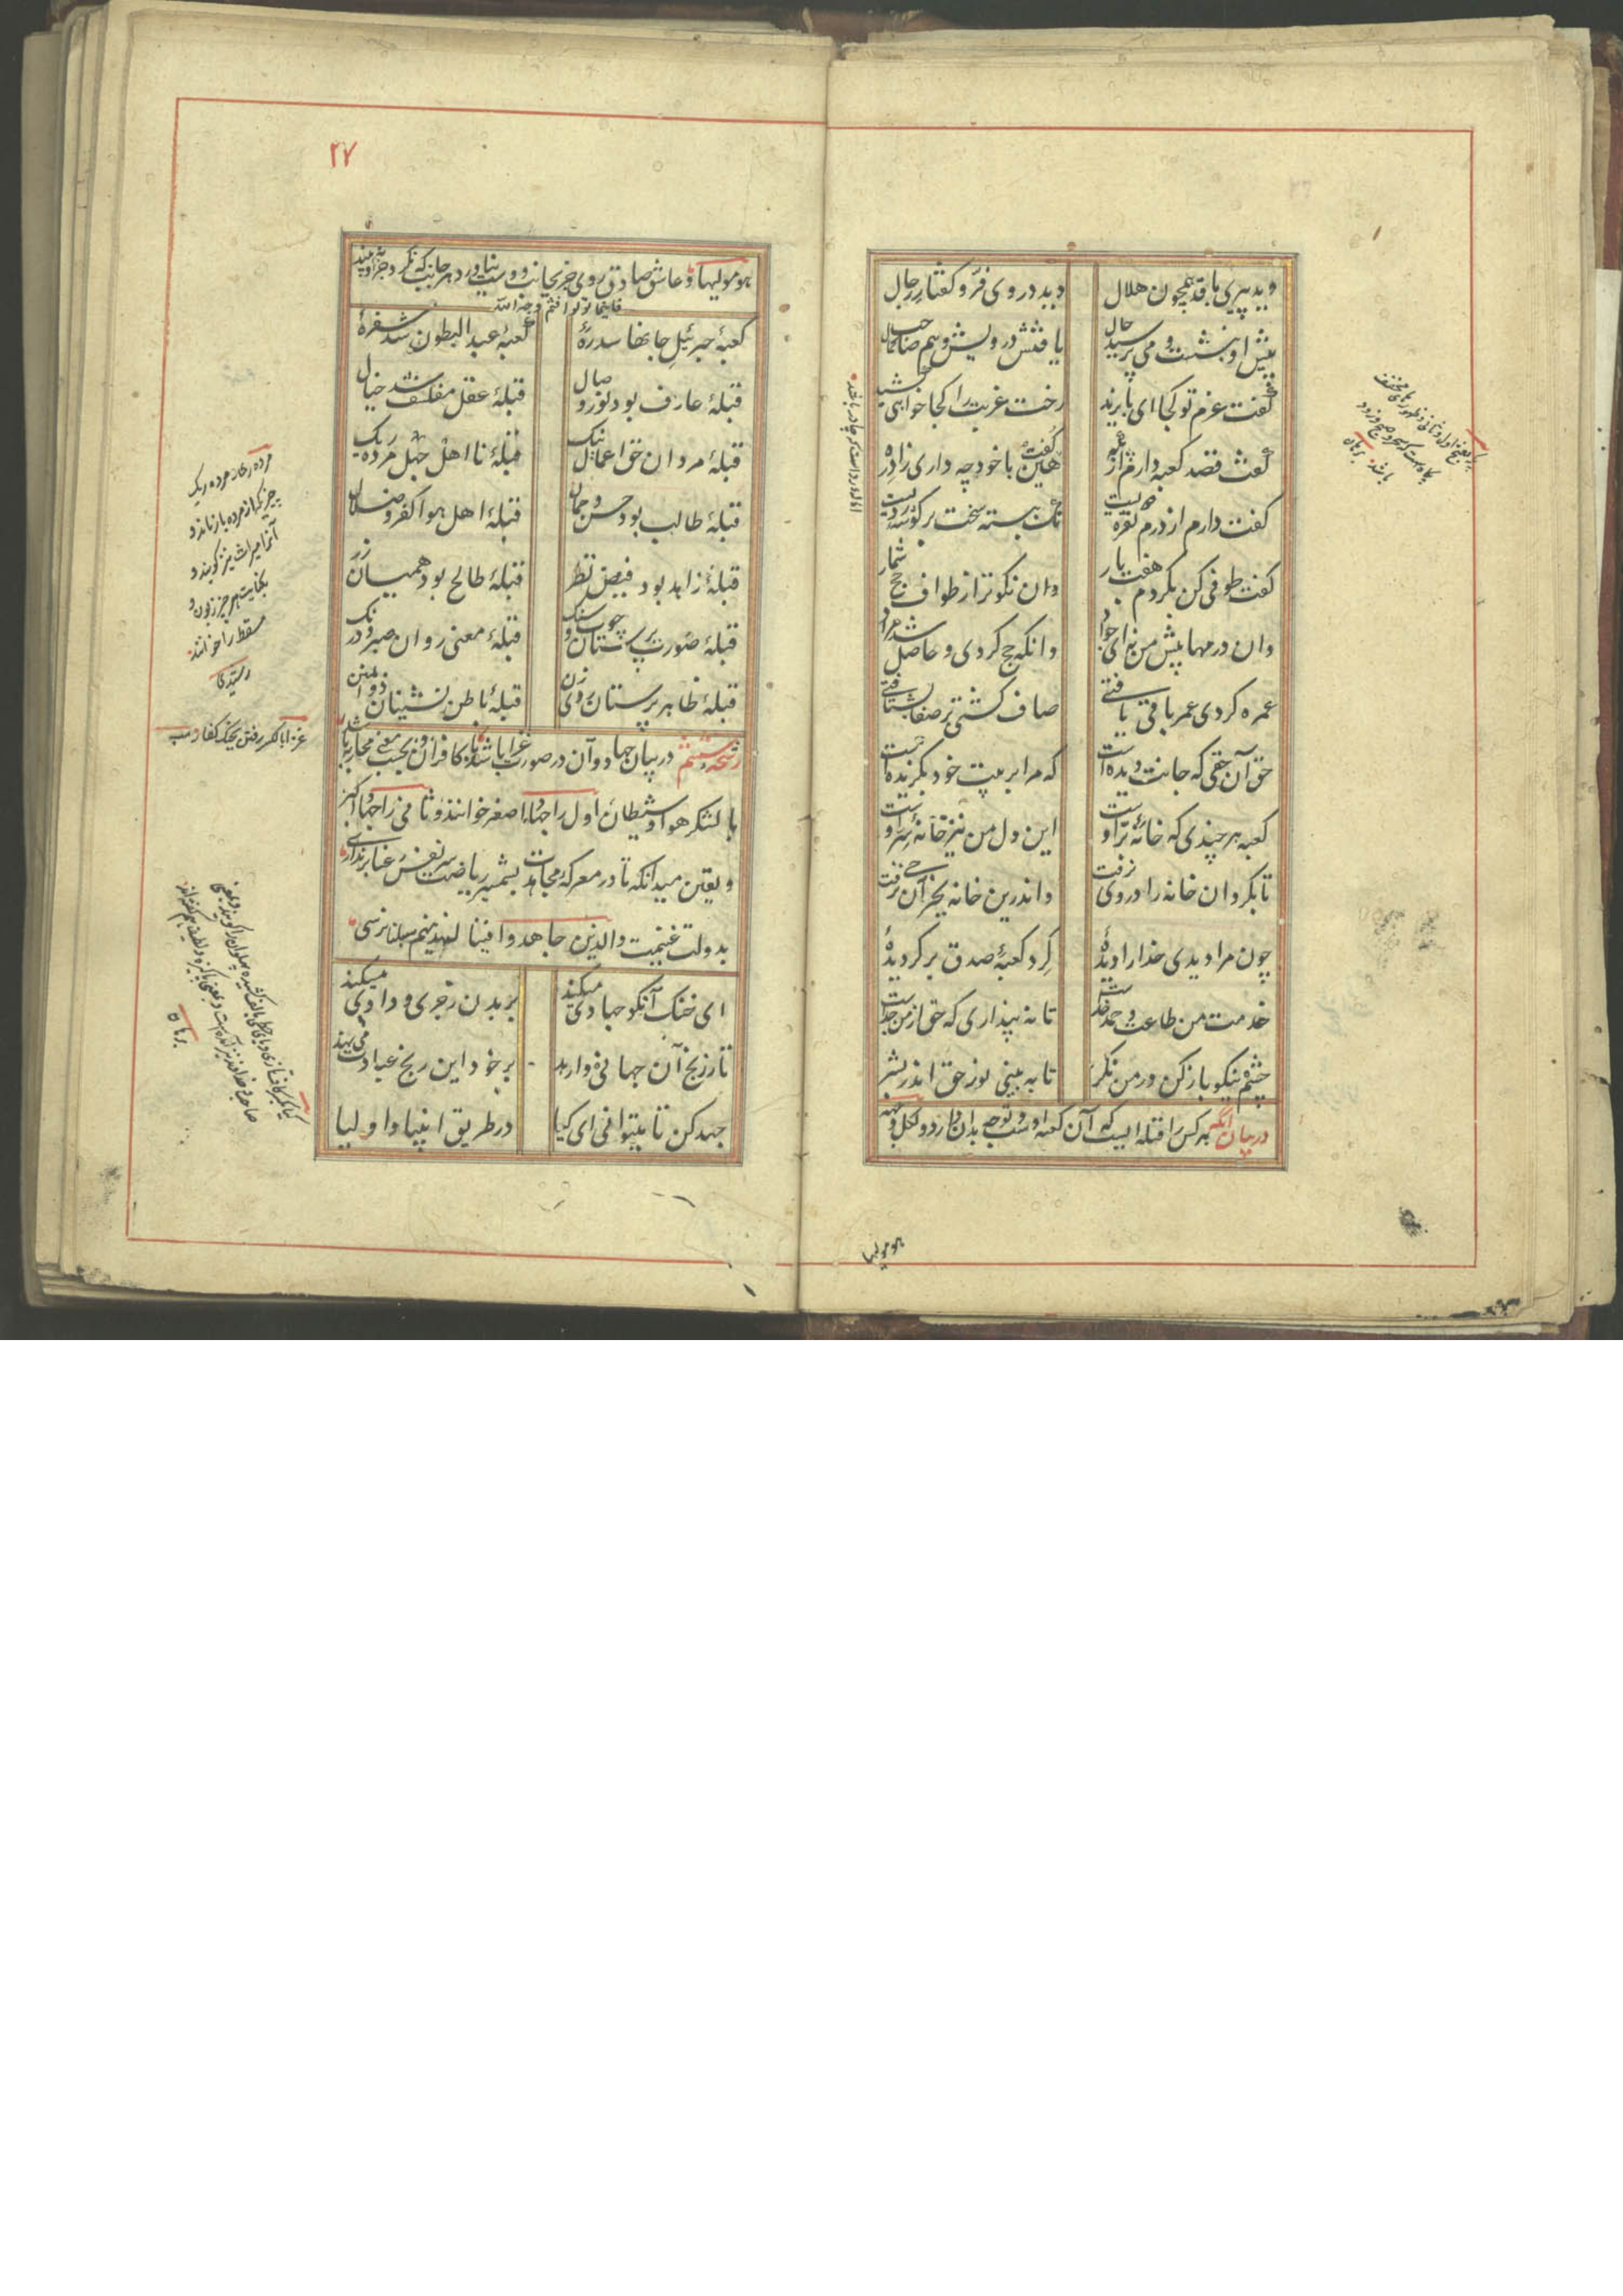 دید پیری با قد همچون هلال
دید در وی فر و گفتار رجال
پیش او بنشست و می پرسید حال
یافتش درویش و هم صاحب
گفت عزم تو کجا ای بایزید
رخت غربت را کجا خواهی کشید
گفت قصد کعبه دارم از
گفت هین با خود چه داری زاد ره
گفت دارم از درم نقره دویست
نک ببسته سخت بر گوشه ردیست
گفت طوفی کن بگردم هفت بار
وان نکوتر از طواف حج شمار
وان درمها پیش من نه ای جواد
وانکه حج کردی و حاصل شد مراد
عمره کردی عمر باقی یافتی
صاف گشتی بر صفا بشتافتی
حق آن حقی که جانت دیده است
که مرا بر بیت خود بگزیده است
کعبه هر چندی که خانه بر اوست
این دل من نیز خانه سر اوست
تا بکرد آن خانه را در وی نرفت
واندرین خانه بجز آن حی نرفت
چون مرا دیدی خدا را دیدهٔ
گرد کعبهٔ صدق بر گردیدهٔ
خدمت من طاعت و حمد خداست
تا نه پنداری که حق از من جداست
چشم نیکو باز کن در من نگر
تا به بینی نور حق اندر بشر
در بیان آنکه هر کس را قبله ایست که آن کعبه اوست و توجه بدان دارد و لکل وجهة
هو مولیها
۲۷
هو مولیها و عاشق صادق روی جز بجانب دوست نیاورد و بهر جانب که نگرد جز او نه بیند
فاینما تولوا فثم وجه الله
کعبهٔ جبرئیل جانها سدرهٔ
کعبهٔ عبد البطون شد سفرهٔ
قبلهٔ عارف بود نور وصال
قبلهٔ عقل مفلسف شد خیال
قبلهٔ مردان حق اعمال نیک
قبلهٔ نا اهل جهل مرده ریک
قبلهٔ طالب بود حسن و جمال
قبلهٔ اهل هوا کفر و ضلال
قبلهٔ زاهد بود فیض نظر
قبلهٔ طالح بود همیان زر
قبلهٔ صورت پرستان چوب و سنک
قبلهٔ معنی روان صبر و درنک
قبلهٔ ظاهر پرستان روی زن
قبلهٔ باطن نشینان ذو المنن
رشحهٔ هشتم در بیان جهاد و آن در صورت غزا باشد با کافران و بحسب معنی محاربه باشد
با لشکر هوا و شیطان اول را جهاد اصغر خوانند و ثانی را جهاد اکبر
و یقین میدانکه تا در معرکهٔ مجاهدت بشمشیر ریاضت سر نفس رعنا برنداری
بدولت غنیمت والذین جاهدوا فینا لنهدینهم سبلنا نرسی
ای خنک آنکو جهادی میکند
بر بدن زجری و دادی میکند
تا ز رنج آن جهانی وارهد
بر خود این رنج عبادت می نهد
جهد کن تا میتوانی ای کیا
در طریق انبیا و اولیا
مرده ریک
چیزیکه از مرده باز ماند و
آنرا میراث نیز گویند و
بکنایت هر چیز زبون و
مسقط را خوانند
رشیدی